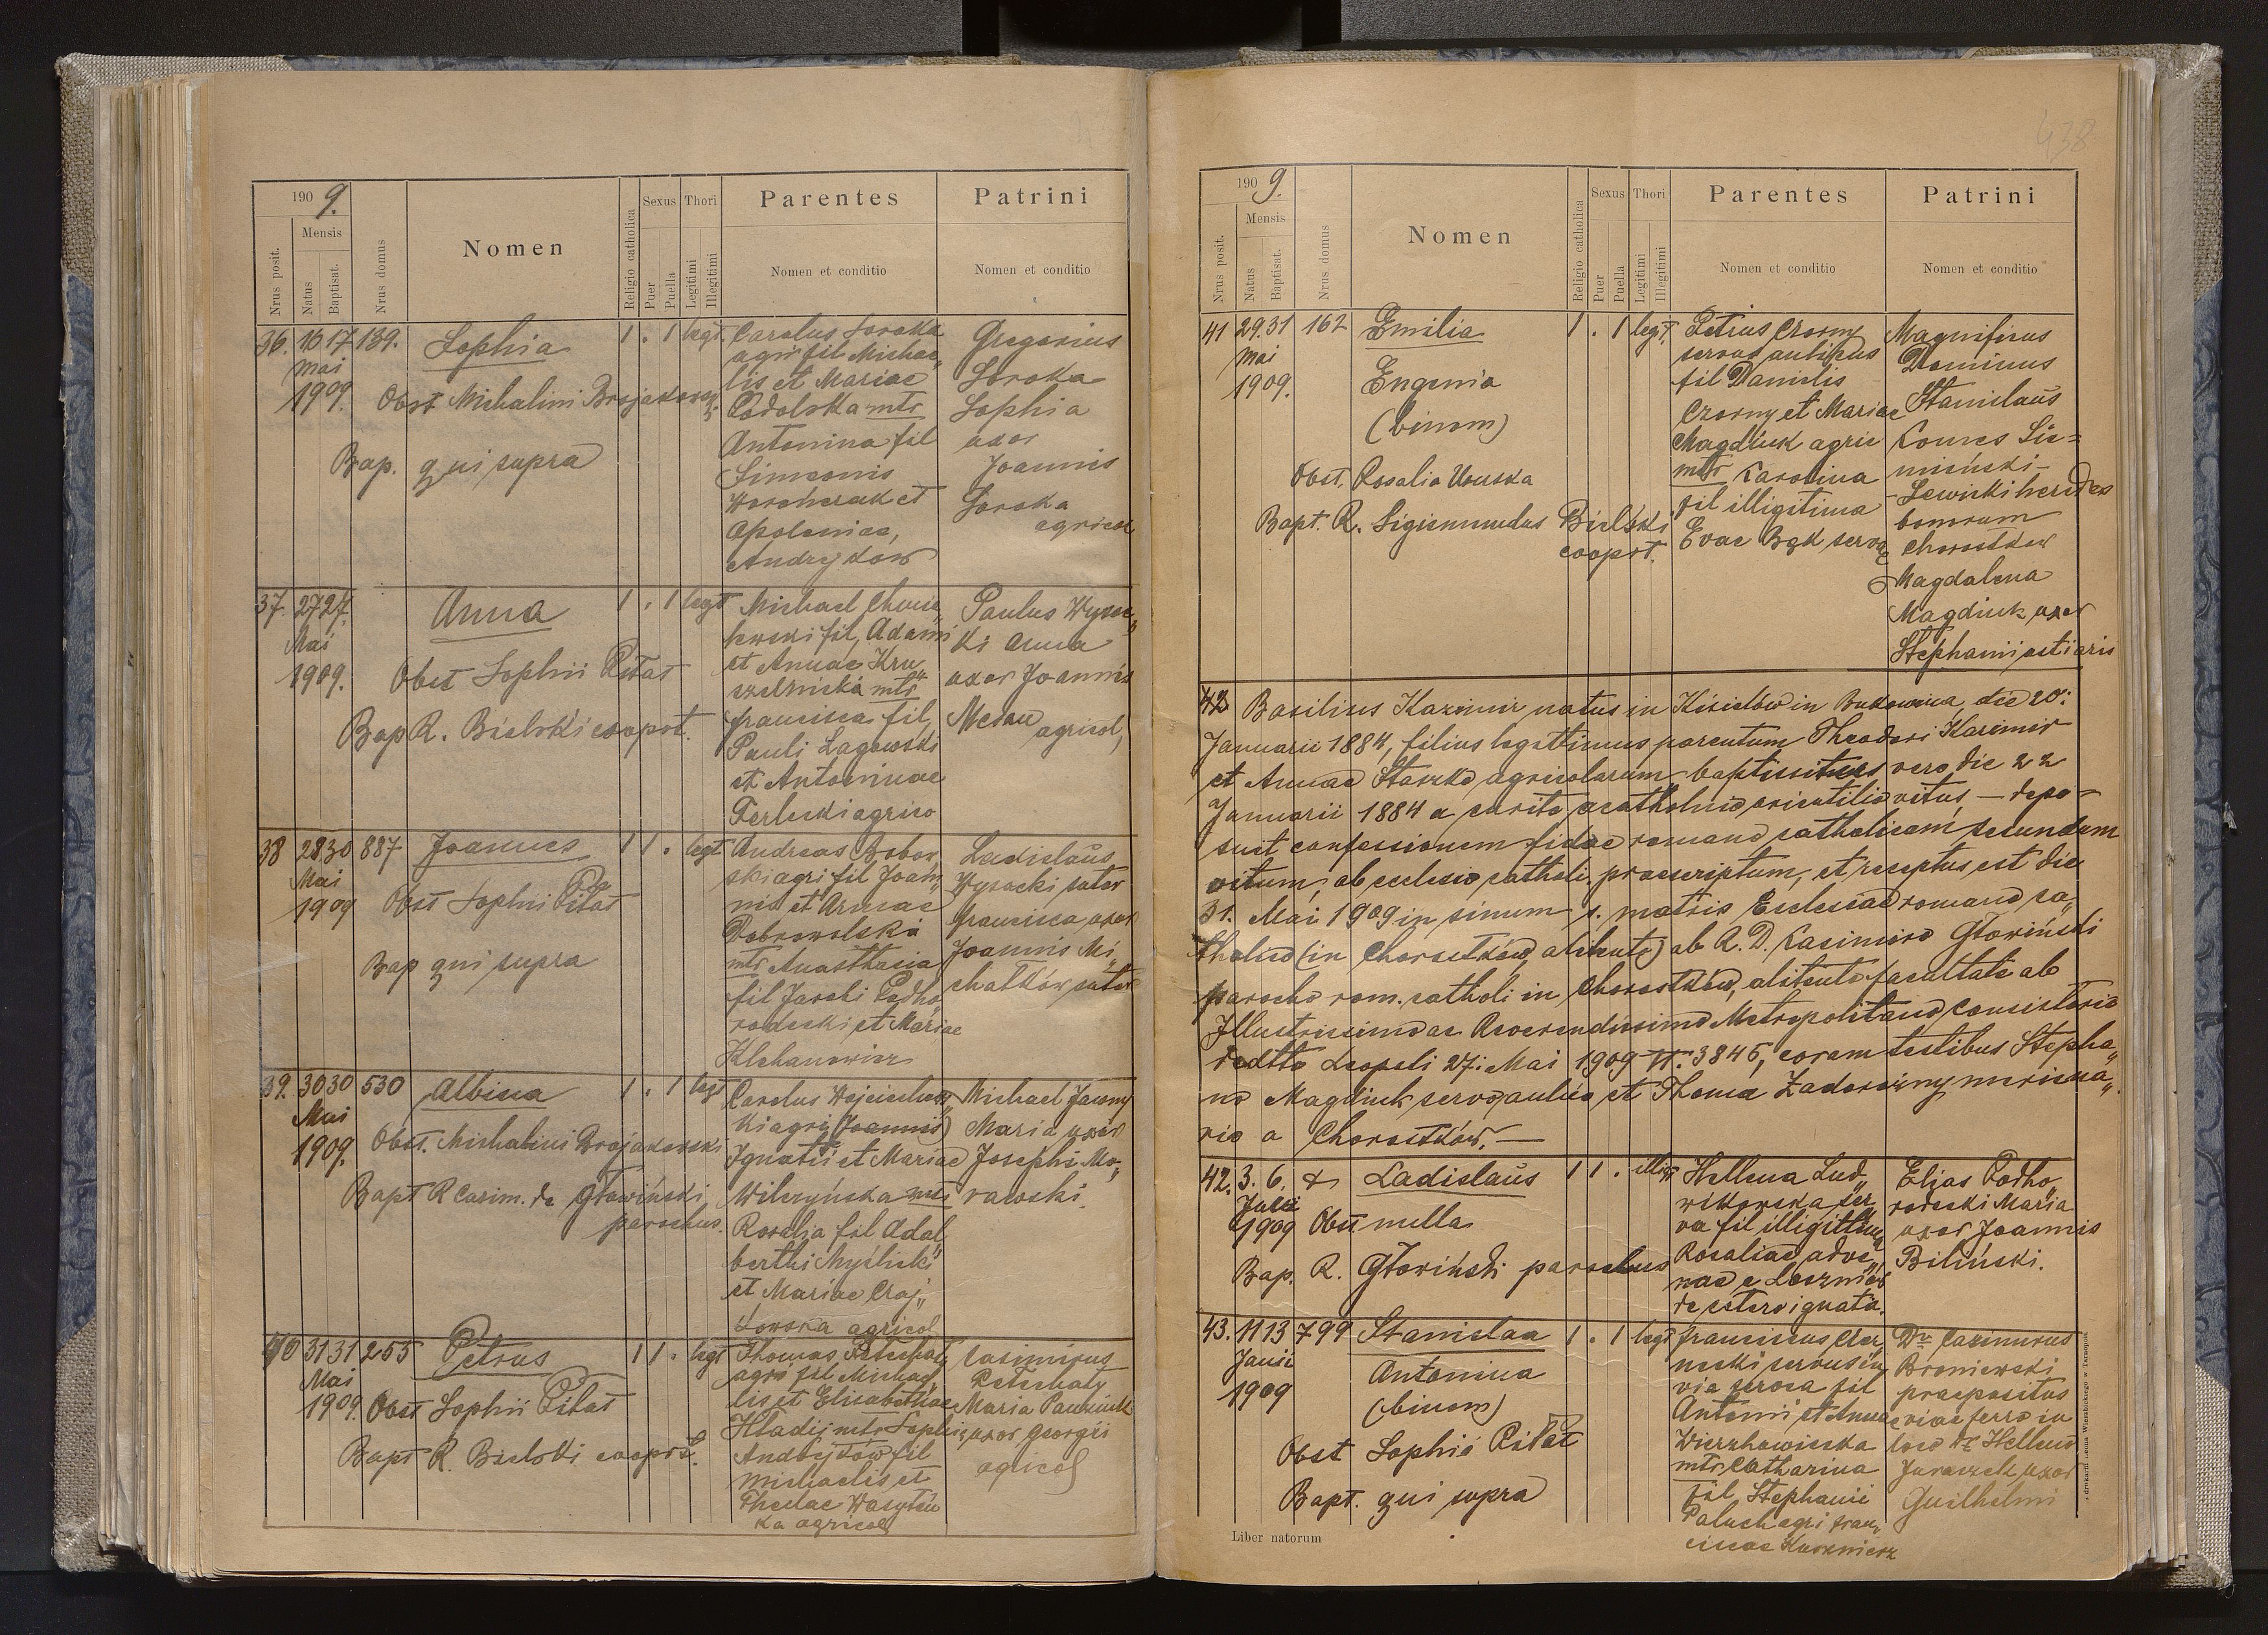 190 9.
Nrus posit.
Mensis
Natus
Baptisat.
Nrus domus
Nomen
Religio catholica
Sexus
Puer
Puella
Thori
Legitimi
Illegitimi
Parentes
Nomen et conditio
Patrini
Nomen et conditio
36. 16 17 139. Sophia 1 . 1 legt.
Mai
1909. Obst Michalini
Bap. qui supra
Carolus Soroka
agri fil Michae„
lis et Mariae
Podolska mtr
Antonina fil
Simeonis
et
Apoloniae
Andrejkow
Gregorius
Soroka
Sophia
uxor
Joannis
Soroka
agricol
37. 27 27. Anna 1 . 1 legt
Mai
1909. Obst Sophii Pitat
Bap R. Bielski cooport.
Michael
fil, Adami
et Annae Kru„
szelnicka mtr
francisca fil,
Pauli Lagowski
et Antoninae
Terlecki agrico
Paulus Wysoc„
ki Anna
uxor Joannis
agricol,
38 28 30 887 Joannes 1 1 . legt
Mai
1909 Obst Sophii Pitat
Bap qui supra
Andreas Bobow„
ski agri fil Joan„
nis et Annae
Dobrowolska
mtr Anasthasia
fil Jacobi Podho„
rodecki et Mariae
Klchanowicz
Ladislaus
Wysocki sutor
francisca uxor
Joannis Mi„
chałków sutor
39. 30 30 530 Albina 1 . 1 legt
Mai
1909. Obst. Michalini
Bapt R Casim. de Głowiński
parochus.
Carolus Wojciechow„
ki agri (Joannis)
Ignatii et Mariae
Wilczyńska mtr
Rosalia fil Adal„
berthi Myślicki
et Mariae Craj„
kowska agricol
Michael Jawny
Maria uxor
Josephi Mo„
rawski.
40 31 31 255 Petrus 1 1 . legt
Mai
1909. Obst Sophii Pitat
Bapt R. Bielski cooport.
Thomas Petechaty
agri fil Michae„
lis et Elisabethae
Hladij mtr Sophia
Andrejków fil
Michaelis et
Theclae Wasyłew
ka agricol
Casimirus
Petechaty
Maria Pauziuk
uxor Georgii
agricol
438
190 9.
Nrus posit.
Mensis
Natus
Baptisat.
Nrus domus
Nomen
Religio catholica
Sexus
Puer
Puella
Thori
Legitimi
Illegitimi
Parentes
Nomen et conditio
Patrini
Nomen et conditio
41 29 31 162 Emilia 1 . 1 legt.
Mai
1909. Eugenia
(binom)
Obst. Rosalia Uouska
Bapt. R. Sigismundus Bielski
cooport.
Petrus Czorny
servus aulicus
fil Danielis
Czorny et Mariae
Magdiuk agric
mtr Carolina
fil illigitima
Evae Bąk servae
Magnificus
Dominus
Stanislaus
Comes Sie=
mieński-
-Lewicki heres
bonorum
Chorostkow
Magdalena
Magdiuk uxor
Stephani ostiaris
42 Basilius Kazimir natus in Kisielów in Bukowina, die 20.
Januarii 1884, filius legittimus parentum Theodori Kazimir
et Annae Staszko agricolarum baptisatus vero die 22
Januarii 1884 a curato acatholico orientalis ritus, — depo=
suit confessionem fidae romano catholicam secundum
ritum, ab ecclesia catholi. praescriptum, et receptus est die
31. Mai 1909 in sinum s. matris Ecclesiae romano ca„
tholico (in Chorostków, ) ab R. D. Casimiro Głowiński
parocho rom. catholi in Chorostków, facultate ab
Illustrissimo ac Reverendissimo Metropolitano Consistorio
ddtto Leopoli 27. Mai 1909 N. 3845, coram testibus Stepha„
no Magdiuk servo aulico et Thoma Zadorożny
rio a Chorostków. —
42. 3. 6. Ladislaus 1 1 . illig
1909 Obst nulla
Bap. R. Głowiński parochus
Hellena Lud„
wikowska ser„
va fil illigittima
Rosaliae adve„
nae e
de cetero ignota.
Elias Podho„
rodecki Maria
uxor Joannis
Biliński.
43. 11 13 799 Stanislaa 1 . 1 legt
Junii
1909 Antonina
(binom)
Obst Sophia Pitat
Bapt. qui supra
franciscus Czer„
necki servus in
via ferrea fil
Antonii et Annae
Wierzhowiecka
mtr Catharina
fil Stephanii
Paluch agri fran„
ciscae Kuśnierz
Dr. Casimirus
Broniewski
praepositus
viae ferro in
loco Hellena
Juraszek uxor
Guilhelmi
Liber natorum